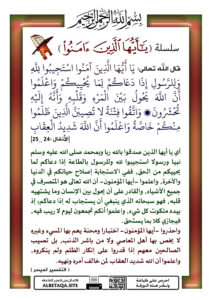 بسم الله الرحمن الرحيم
سلسلة ( يَـٰٓأَيُّهَا ٱلَّذِينَ ءَامَنُوا۟ )
قال الله تعالى: يَا أَيُّهَا الَّذِينَ آمَنُوا اسْتَجِيبُوا لِلَّهِ
وَلِلرَّسُولِ إِذَا دَعَاكُمْ لِمَا يُحْيِيكُمْ وَاعْلَمُوا
أَنَّ اللَّهَ يَحُولُ بَيْنَ الْمَرْءِ وَقَلْبِهِ وَأَنَّهُ إِلَيْهِ
تُحْشَرُونَ ۞ وَاتَّقُوا فِتْنَةً لَا تُصِيبَنَّ الَّذِينَ ظَلَمُوا
مِنْكُمْ خَاصَّةً وَاعْلَمُوا أَنَّ اللَّهَ شَدِيدُ الْعِقَابِ
[الأنفال: 24 _ 25]
أي يا أيها الذين صدقوا بالله ربا وبمحمد صلى الله عليه وسلم
نبيا ورسولا استجيبوا لله وللرسول بالطاعة إذا دعاكم لما
يحييكم من الحق, ففي الاستجابة إصلاح حياتكم في الدنيا
والآخرة, واعلموا -أيها المؤمنون- أن الله تعالى هو المتصرف في
جميع الأشياء, والقادر على أن يحول بين الإنسان وما يشتهيه
قلبه, فهو سبحانه الذي ينبغي أن يستجاب له إذا دعاكم; إذ
بيده ملكوت كل شيء, واعلموا أنكم تجمعون ليوم لا ريب فيه,
فيجازي كلا بما يستحق.
واحذروا -أيها المؤمنون- اختبارا ومحنة يعم بها المسيء وغيره
لا يخص بها أهل المعاصي ولا من باشر الذنب, بل تصيب
الصالحين معهم إذا قدروا على إنكار الظلم ولم ينكروه,
واعلموا أن الله شديد العقاب لمن خالف أمره ونهيه.
[ التفسير الميسر ]
ALBETAQA.SITE